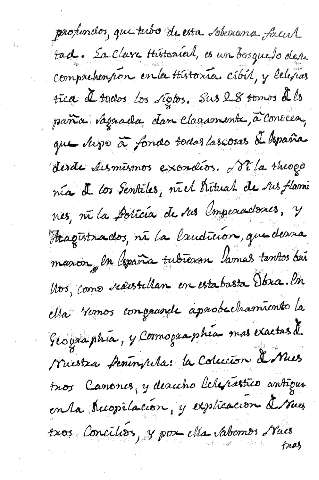 profundos, que tubo de esta soberana facul
tad. La Clave Historial, es un bosquejo de su
comprehension en la Historia cibil, y Eclesias
tica de todos los siglos. Sus 28 tomos de Es
paña Sagrada dan claramente, á conocer,
que supo á fondo todas las cosas de España
desde sus mismos exordios. Ni la theogo
nía de los Gentiles, ni el Ritual de sus flami
nes, ni la Policía de sus Emperadores, y
Magistrados, ni la Erudición, que derra
maron, en España tubieron jamas tantos
litos, como se destellan en esta basta Obra. En
ella vemos con grande aprobechamiento la
Geographía, y Cosmographía mas exactas de
Nuestra Península: la Coleccion de Nues
tros Canones, y derecho Eclesiástico antiguo
en la Recopilación, y explicación de Nues
tros Concilios, y por ella sabemos Nues
tros